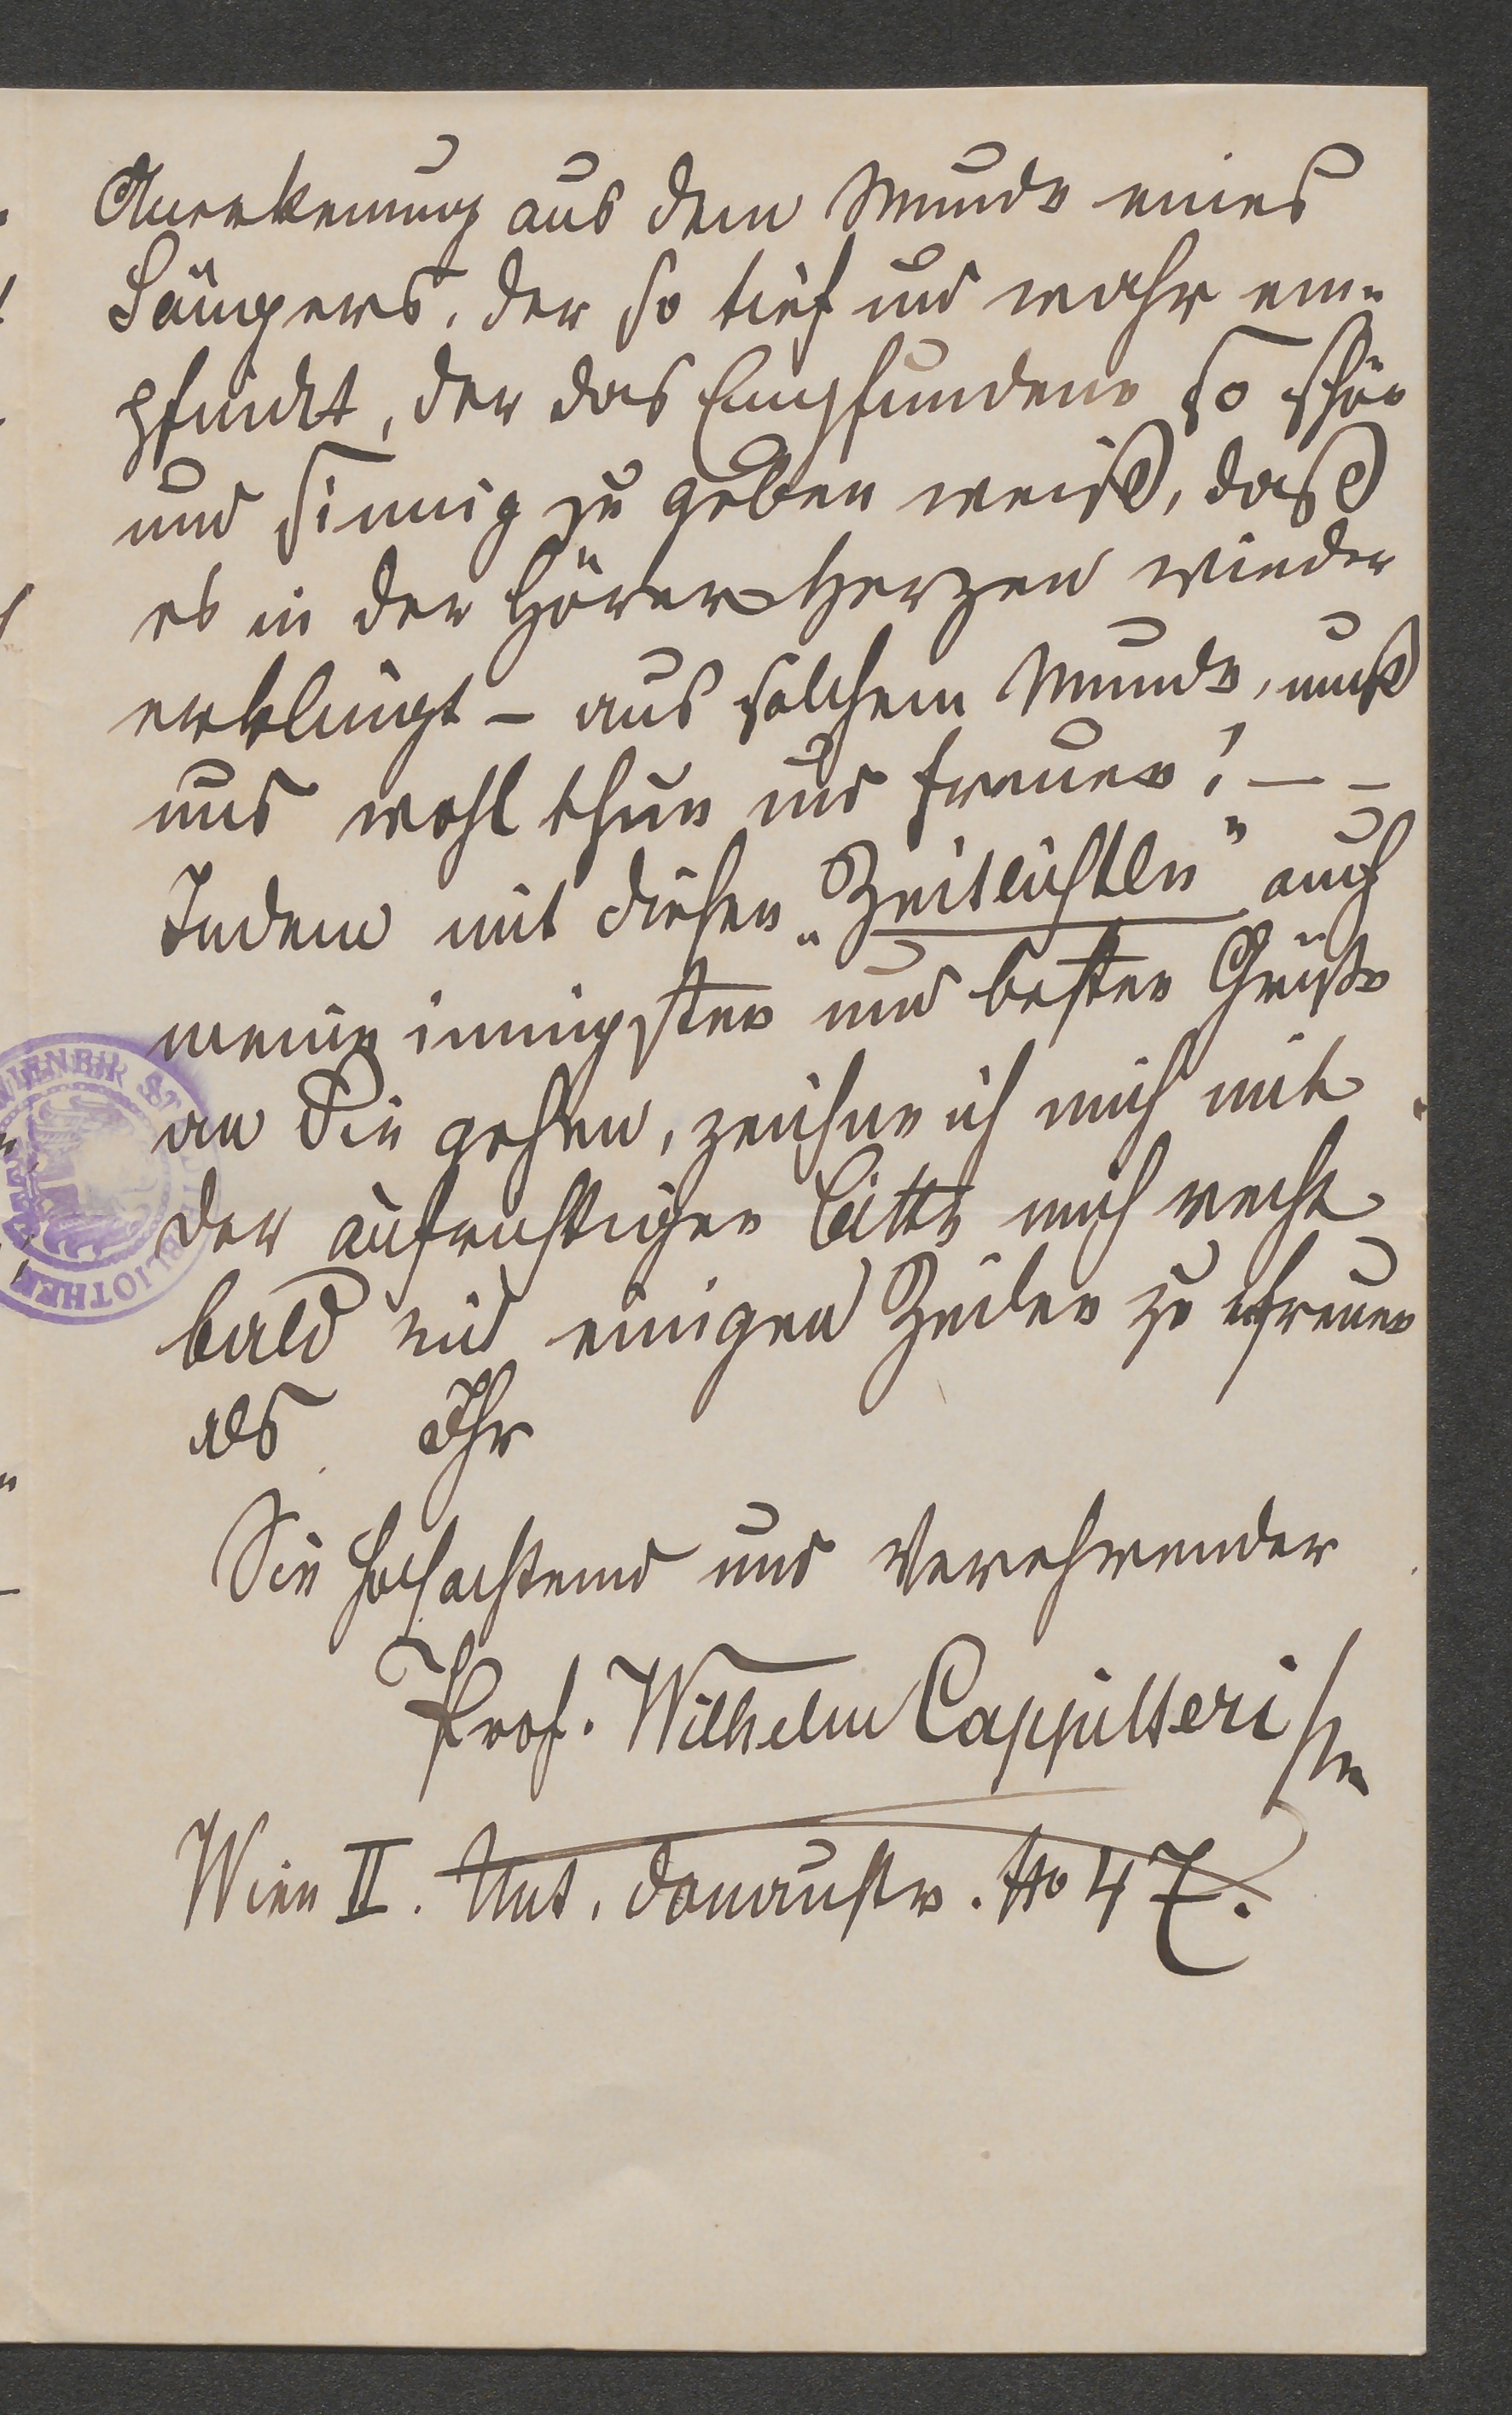 Anerkenung aus dem Munde eines
Sängers, der so tief und wahr em-
pfindet, der das Empfundene so schön
und sinnig zu geben weiß, daß
es in der Hörer Herzen wieder
erklingt – aus solchem Munde, muß
uns wohl thun und freuen! – –
Indem mit diesen „Zeitlichtln" auch
meine innigsten und besten Grüße
an Sie gehen, zeichne ich mich mit
der aufrichtigen Bitte mich recht
bald mit einigen Zeilen zu erfreuen
als Ihr
Sie hochachtend und Verehrender
Prof. Wilhelm Cappilleri
Wien II. Unt. Donaustr. No 47.
WIENER ST
BIBLIOTHEK